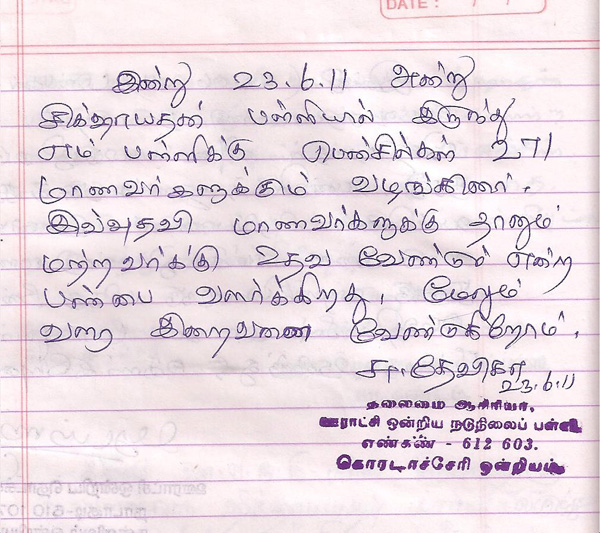 DATE : / /
இன்று 23.6.11 அன்று
சிக்ஷாயதன் பள்ளியில் இருந்து
எம் பள்ளிக்கு பென்சில்கள் 271
மாணவர்களுக்கும் வழங்கினர்.
இவ்வுதவி மாணவர்களுக்கு தானும்
மற்றவர்க்கு உதவ வேண்டும் என்ற
பண்பை வளர்க்கிறது. மேலும்
வளர இறைவனை வேண்டுகிறோம்.
சா.தேவிகா
23.6.11
தலைமை ஆசிரியர்,
ஊராட்சி ஒன்றிய நடுநிலைப் பள்ளி
எண்கண் - 612 603.
கொரடாச்சேரி ஒன்றியம்